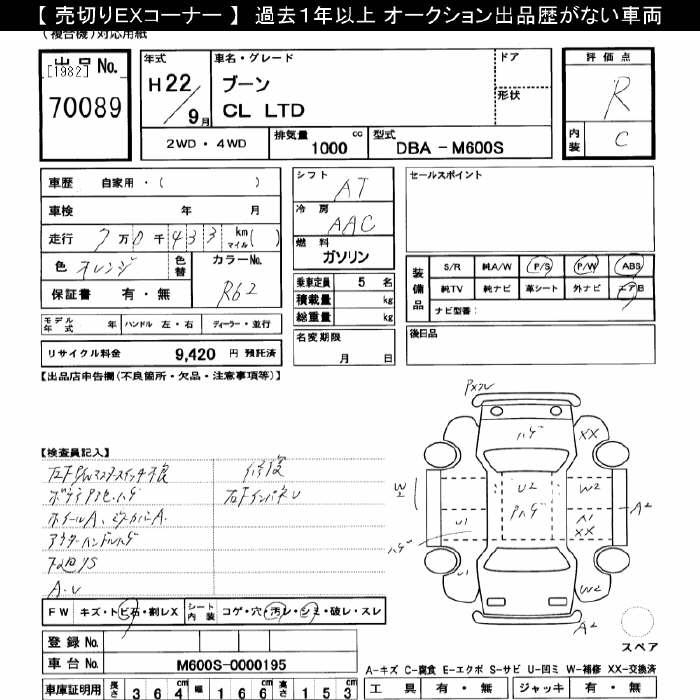 【 売切りEXコーナー 】 過去1年以上 オークション出品歴がない車両
(複合機)対応用紙
出品 No.
[1982]
70089
年式
H22/9月
車名・グレード
ブーン
CL LTD
ドア
形状
評価点
R
内装
C
2WD・4WD
排気量 cc
1000
型式
DBA - M600S
車歴 自家用・( )
車検 年 月
走行 7万0千433 km マイル( )
色 オレンジ
色替
カラーNo.
R62
保証書 有・無
シフト
AT
冷房
AAC
燃料
ガソリン
乗車定員 5 名
積載量 kg
総重量 kg
セールスポイント
装備品
S/R 純A/W P/S P/W ABS
純TV 純ナビ 革シート 外ナビ エアB
ナビ型番:
モデル年式 年 ハンドル 左・右 ディーラー・並行
リサイクル料金 9,420 円 預託済
名変期限
月 日
後日品
【出品店申告欄(不良箇所・欠品・注意事項等)】
【検査員記入】
修復
ホイールA、
アウターハンドルハゲ
A.U
ハゲ
XX
W2
U2
W2
A2
U1
Pハゲ
A1
XX
ハゲ
U1
W2
A2
スペア
FW キズ・トビ石・割レX
シート内装 コゲ・穴・汚レ・シミ・破レ・スレ
登録 No.
車台 No. M600S-0000195
A-キズ C-腐食 E-エクボ S-サビ U-凹ミ W-補修 XX-交換済
車庫証明用 長さ 3 6 4 cm 幅 1 6 6 cm 高さ 1 5 3 cm
工具 有・無 ジャッキ 有・無